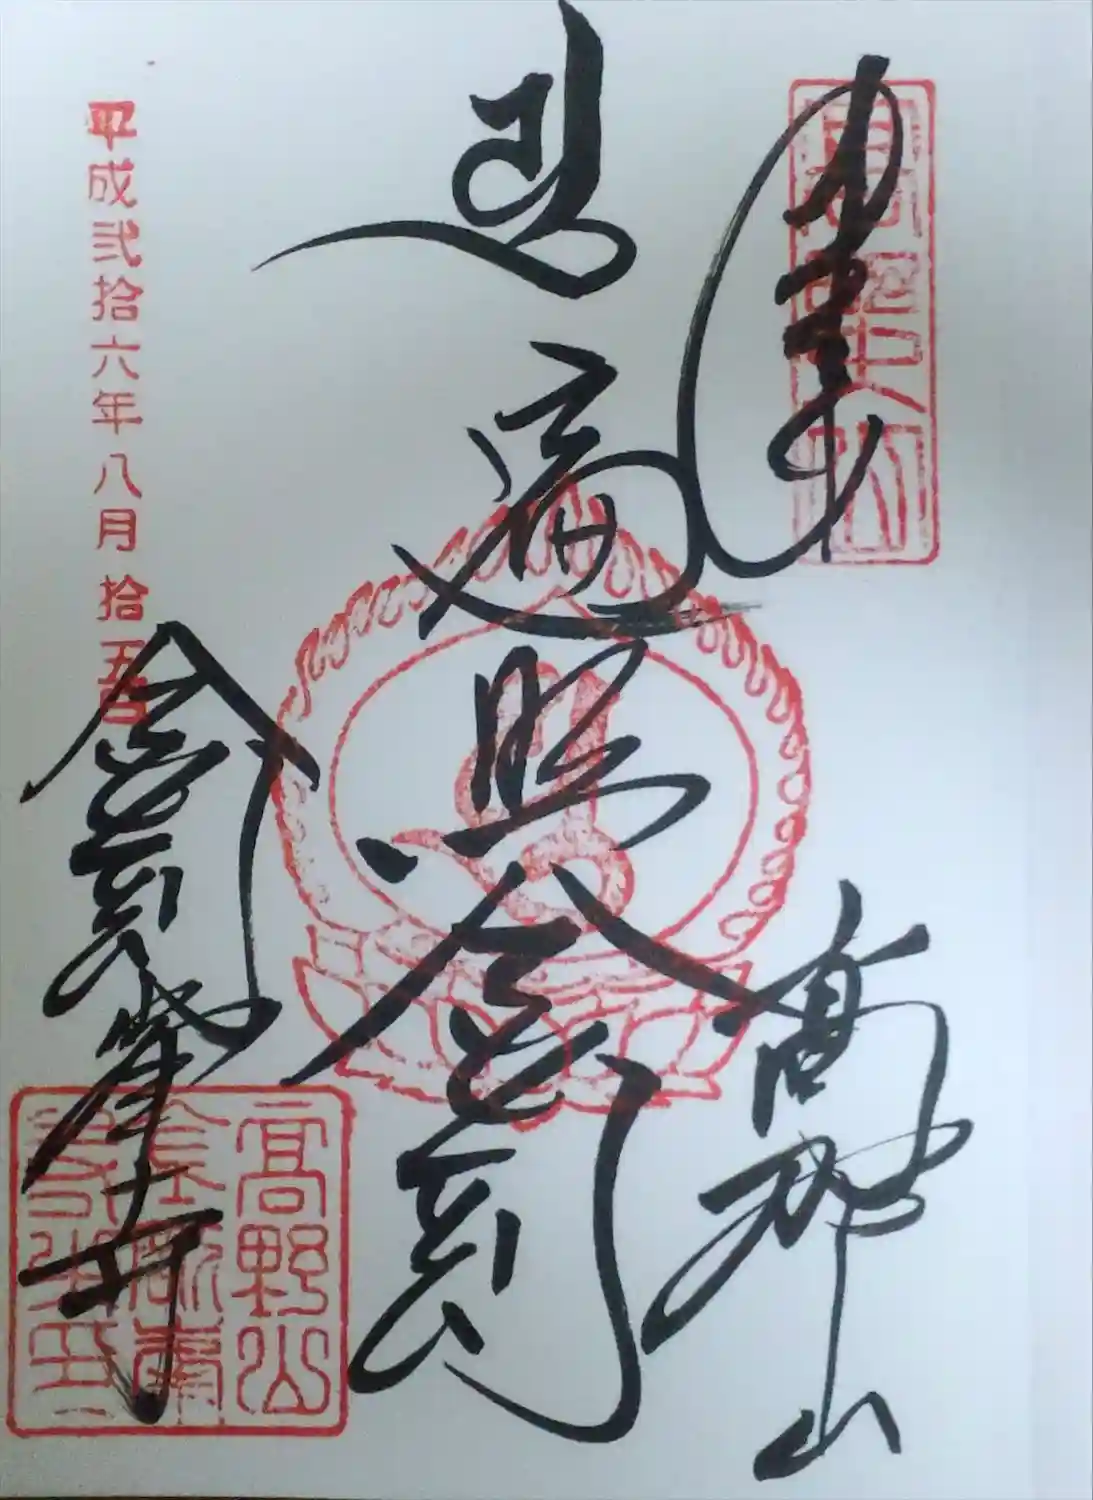 奉拝
高野山
遍照金剛
平成弐拾六年八月拾五日
金剛峯寺
高野山